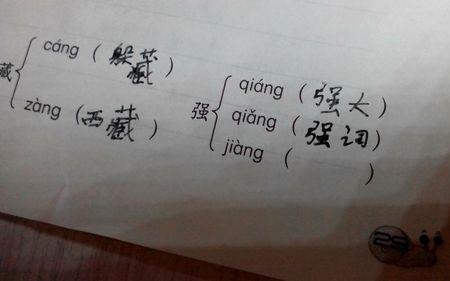 藏
cáng (躲藏)
zàng (西藏)
强
qiáng (强大)
qiǎng (强词)
jiàng ( )
29